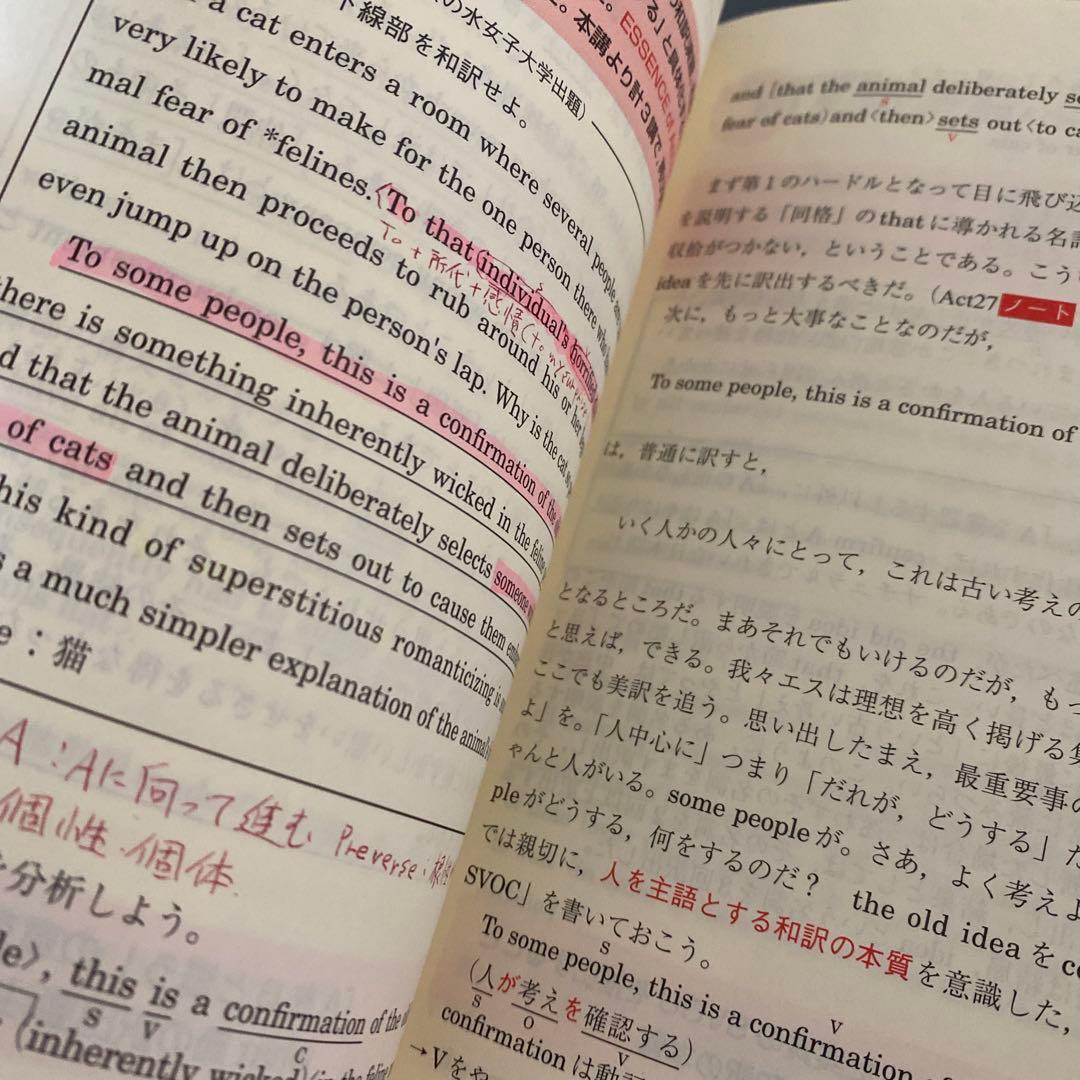 の水女子大学出題)
下線部を和訳せよ。
a cat enters a room where several people
very likely to make for the one person there who
mal fear of *felines. To that individual's
To + 所有代 + 感情
animal then proceeds to rub around his or her
even jump up on the person's lap. Why is the cat
To some people, this is a confirmation of the
there is something inherently wicked in the feline
d that the animal deliberately selects someone
of cats and then sets out to cause them
his kind of superstitious romanticizing is
s a much simpler explanation of the animal
e：猫
A：Aに向って進む
個性・個体
Preverse：
分析しよう。
le〉, this is a confirmation of the
s v c
(inherently wicked)
る」と
ESSENCE
。本講より計3講で、
and [that the animal deliberately
s
fear of cats) and 〈then〉 sets out 〈to
v
まず第1のハードルとなって目に飛び込
を説明する「同格」のthatに導かれる名
収拾がつかない，ということである。こう
ideaを先に訳出するべきだ。(Act27 ノート
次に，もっと大事なことなのだが，
To some people, this is a confirmation of
は，普通に訳すと，
いく人かの人々にとって，これは古い考えの
となるところだ。まあそれでもいけるのだが，もっ
と思えば，できる。我々エスは理想を高く掲げる
ここでも美訳を追う。思い出したまえ，最重要事の
よ」を。「人中心に」つまり「だれが，どうする」だ
ゃんと人がいる。some peopleが。さあ，よく考えよ
pleがどうする，何をするのだ？ the old ideaを
では親切に，人を主語とする和訳の本質を意識した，
SVOC」を書いておこう。
To some people, this is a confirmation
s v
(人が考えを確認する)
s o v
confirmation は動
→Vをや